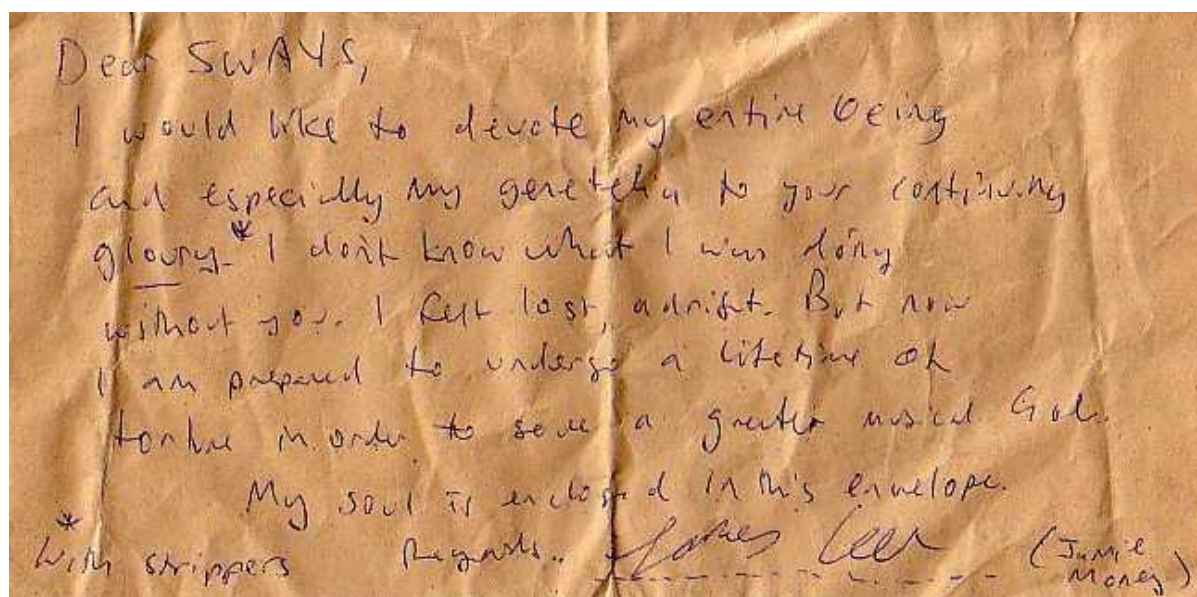 Dear SWAYS,
I would like to devote my entire being
and especially my to your continuing
gloury.* I don't know what I was doing
without you. I felt lost, adrift. But now
I am prepared to undergo a lifetime of
torture in order to serve a greater musical God.
My soul is enclosed in this envelope.
* With strippers Regards.. James (Jamie
Money)